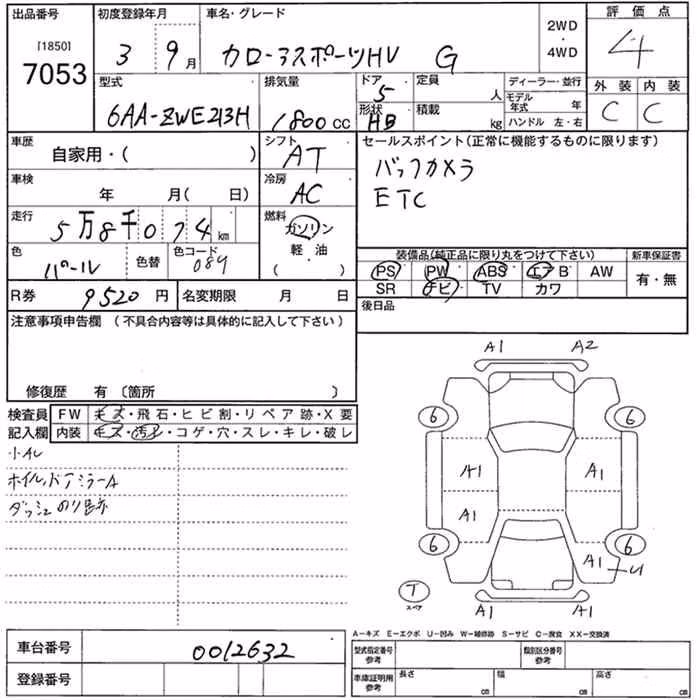 出品番号 初度登録年月 車名・グレード 2WD ・ 4WD 評価点
[1850]
7053 3 9月 カローラスポーツHV G 4
型式 排気量 ドア 定員 人 ディーラー・並行 外装 内装
6AA-ZWE213H 1800cc 5 モデル年式 年 C C
形状 HB 積載 kg ハンドル 左・右
車歴 自家用・( ) シフト AT セールスポイント(正常に機能するものに限ります)
バックカメラ
ETC
車検 年 月( 日) 冷房 AC
走行 5万8千074km 燃料 ガソリン 軽・油 ・ ( )
色 パール 色替 色コード 089
装備品(純正品に限り丸をつけて下さい) 新車保証書
PS PW ABS エアB AW 有・無
SR ナビ TV カワ
R券 9520円 名変期限 月 日 後日品
注意事項申告欄 (不具合内容等は具体的に記入して下さい)
修復歴 有 〔箇所 〕
検査員 FW キズ・飛石・ヒビ割・リペア跡・X要
記入欄 内装 キズ・汚レ・コゲ・穴・スレ・キレ・破レ
小AU
ホイル、ドアミラーA
ダッシュ のり跡
A1 A2
6 6
A1 A1
A1
6 6
A1 U
T
スペア
A1 A1
A-キズ E-エクボ U-凹み W-補修跡 S-サビ C-腐食 XX-交換済
車台番号 0012632 型式指定番号 参考 類別区分番号 参考
登録番号 車庫証明用 参考 長さ cm 幅 cm 高さ cm